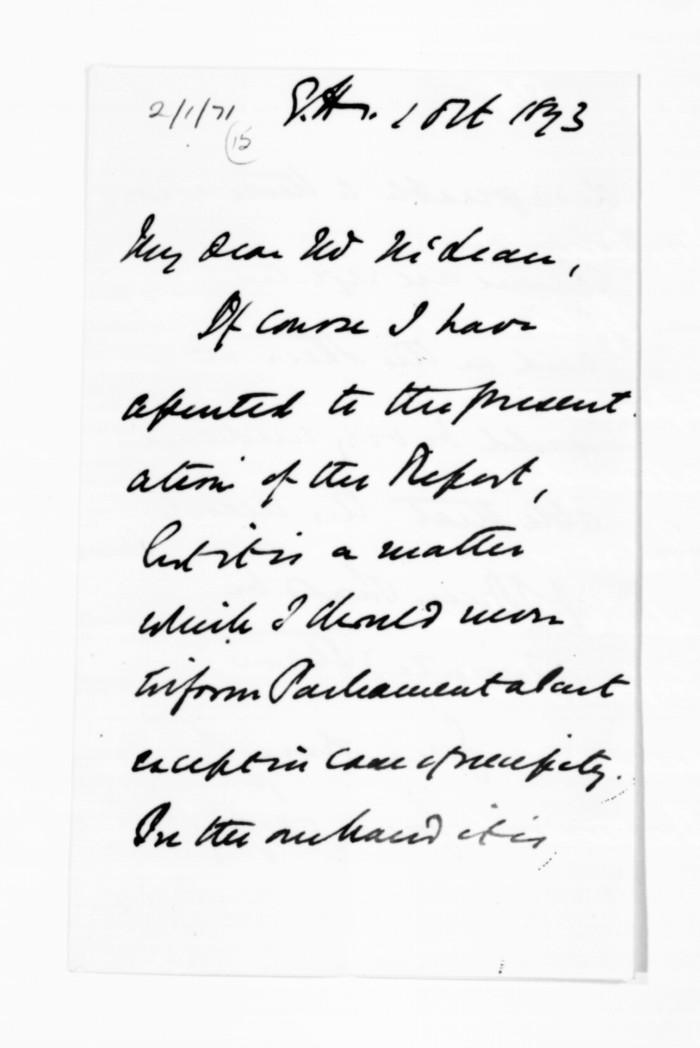 2/1/71 G.H. 1 Oct 1873
(15)
My dear Mr McLean,
Of course I have
assented to the present
ation of the Report,
but it is a matter
which I should never
inform Parliament about
except in case of necessity.
On the one hand it is